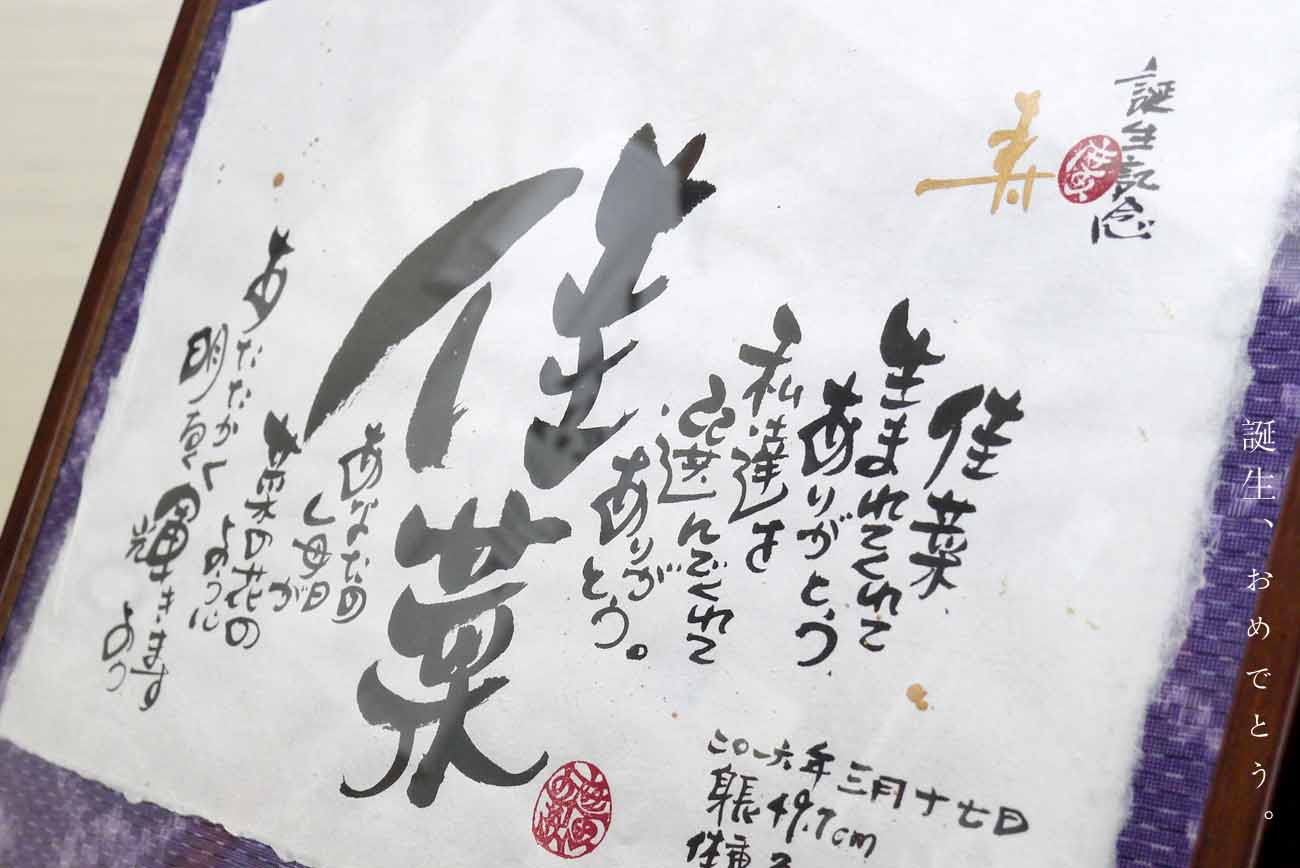 誕生記念
寿
佳菜
生まれてくれて
ありがとう
私達を
選んでくれて
ありがとう。
佳菜
あなたの
毎日が
菜の花の
ように
あたたかく
明るく
輝きます
よう
二〇一六年三月十七日
身長49.7cm
体重
誕生、おめでとう。